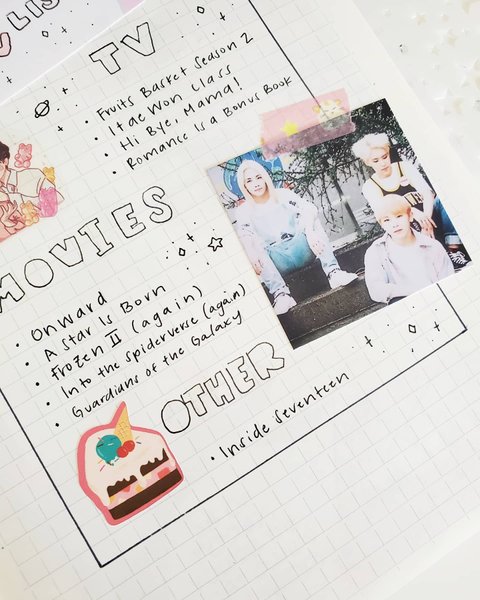 LIS
TV
• Fruits Basket Season 2
• Itae Won Class
• Hi Bye, Mama!
• Romance Is a Bonus Book
MOVIES
• Onward
• A Star Is Born
• Frozen II (again)
• Into the Spiderverse (again)
• Guardians of the Galaxy
OTHER
• Inside Seventeen